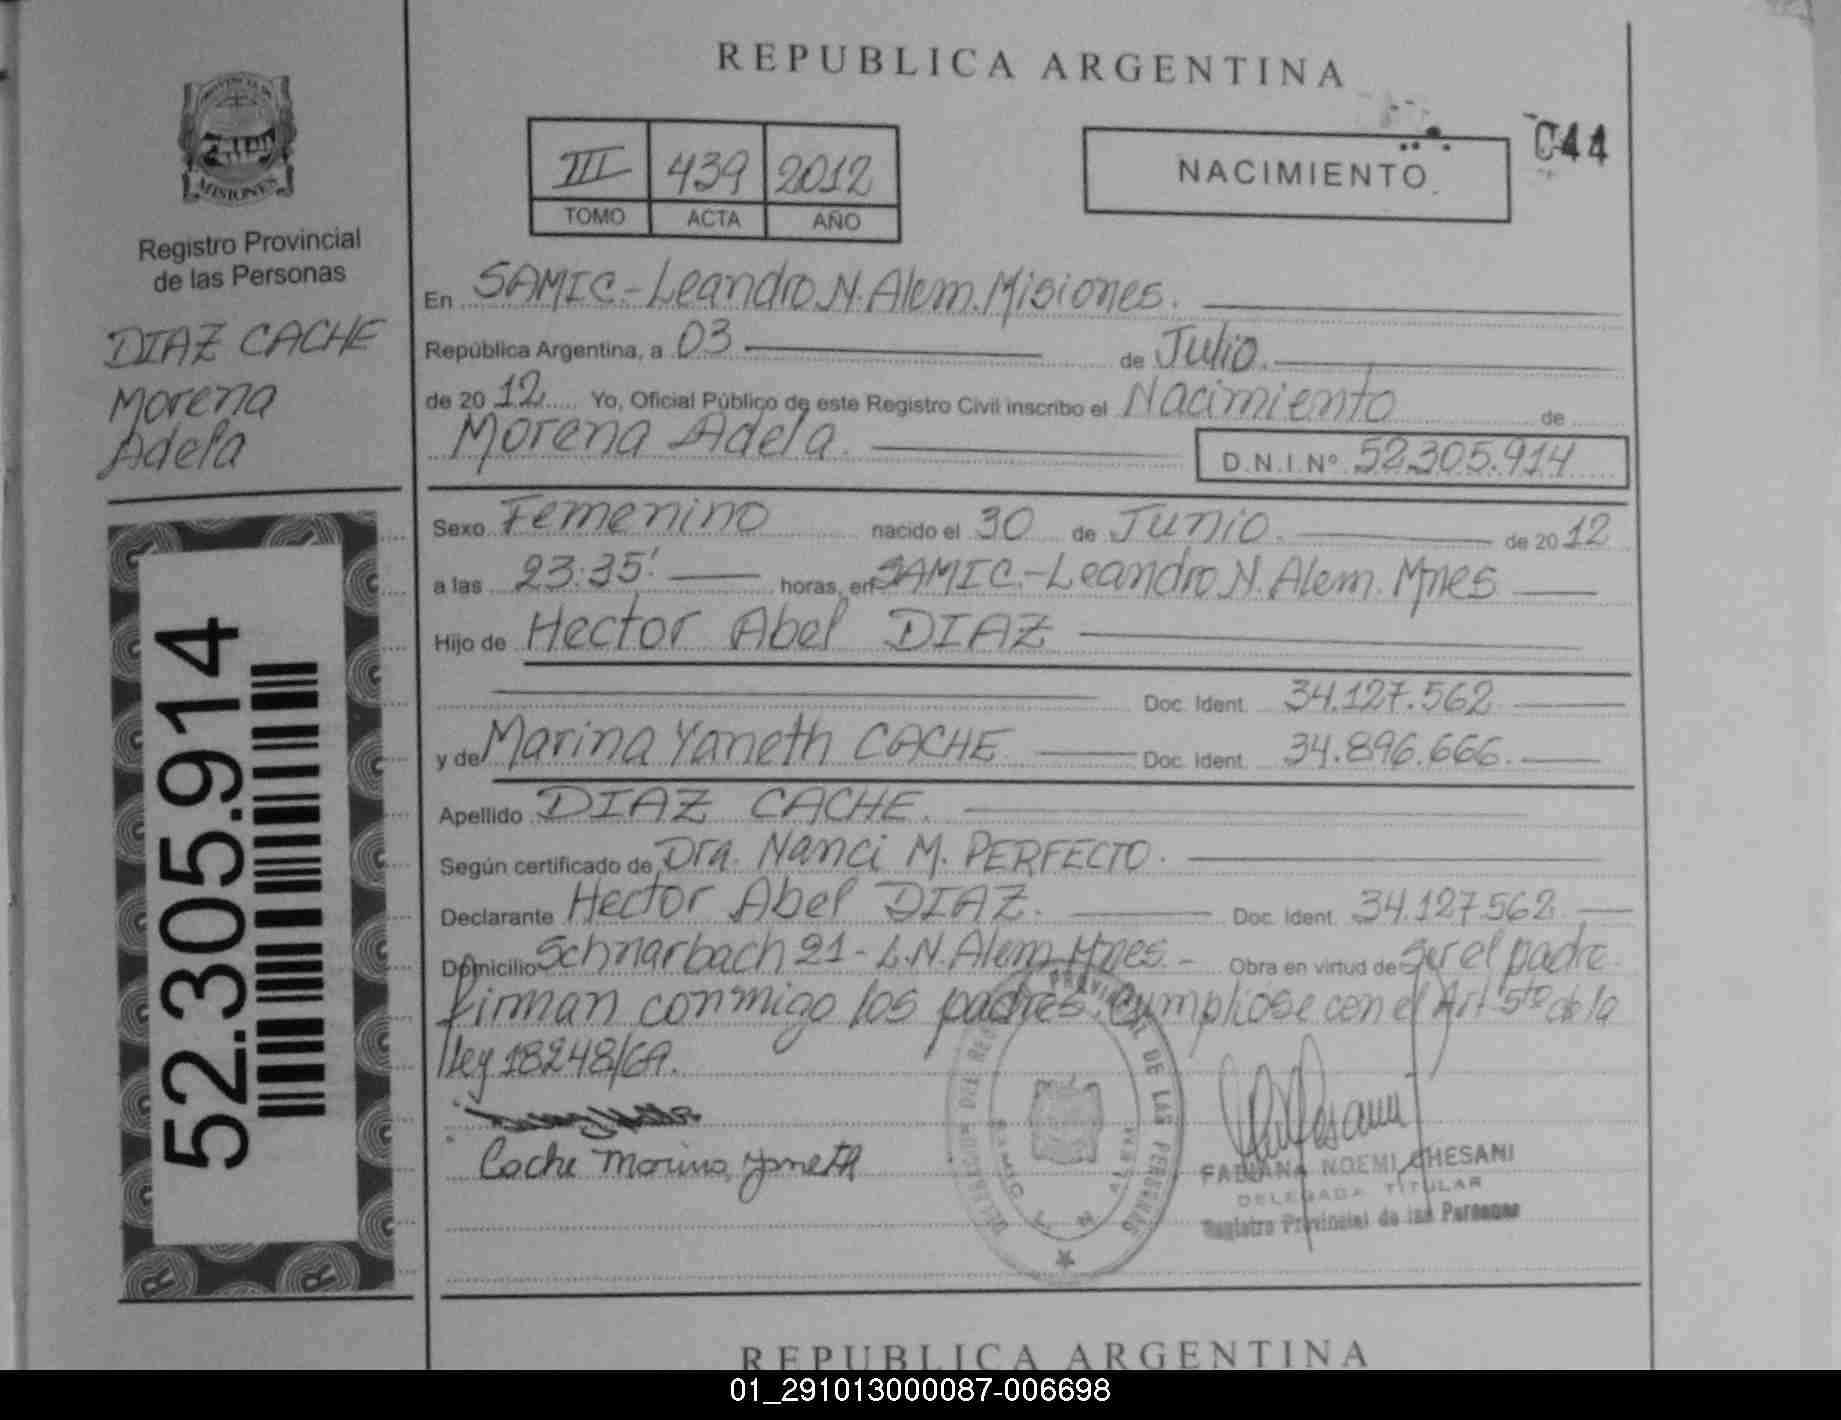 REPUBLICA ARGENTINA
MISIONES
Registro Provincial
de las Personas
DIAZ CACHE
Morena
Adela
52.305.914
III 439 2012
TOMO ACTA AÑO
NACIMIENTO
044
En SAMIC.-Leandro N. Alem. Misiones.
República Argentina, a 03 de Julio.
de 2012 Yo, Oficial Público de este Registro Civil inscribo el Nacimiento de
Morena Adela D.N.I.Nº 52.305.914
Sexo Femenino nacido el 30 de Junio. de 2012
a las 23:35' horas, en SAMIC.-Leandro N. Alem. Mnes
Hijo de Hector Abel DIAZ
Doc. Ident. 34.127.562
y de Marina Yaneth CACHE Doc. Ident. 34.896.666.
Apellido DIAZ CACHE.
Según certificado de Dra. Nanci M. PERFECTO.
Declarante Hector Abel DIAZ. Doc. Ident. 34.127.562
Domicilio Schnarbach 21- L.N. Alem Mnes.- Obra en virtud de ser el padre.
Firman conmigo los padres. Cumplióse con el Art 5to de la
ley 18248/69.
Cache Marina, Yaneth
PROVINCIAL DE LAS PERSONAS
FABIANA NOEMI CHESANI
DELEGADA TITULAR
Registro Provincial de las Personas
REPUBLICA ARGENTINA
01_291013000087-006698